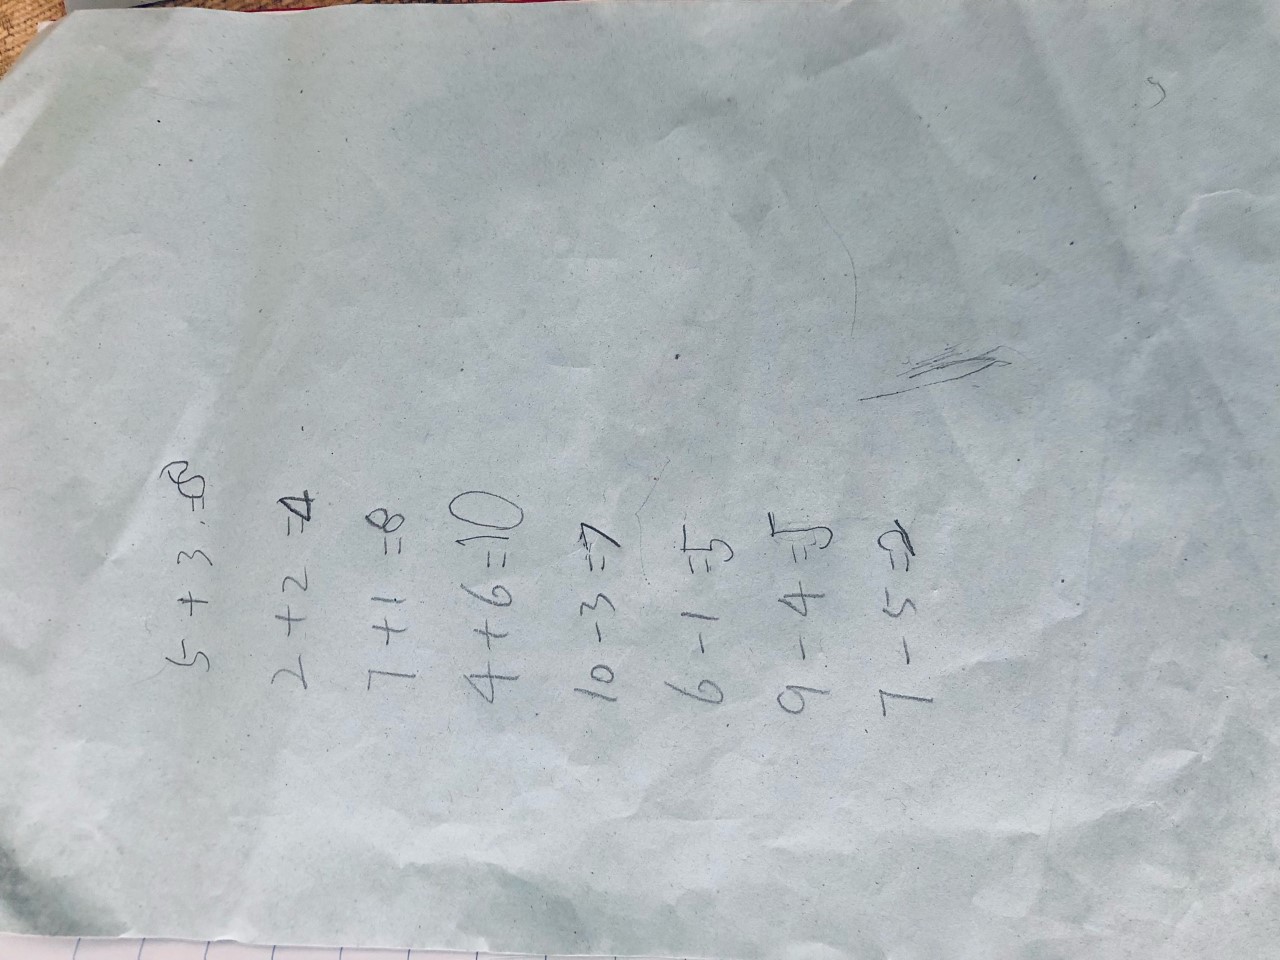 5 + 3 = 8
2 + 2 = 4
7 + 1 = 8
4 + 6 = 10
10 - 3 = 7
6 - 1 = 5
9 - 4 = 5
7 - 5 = 2